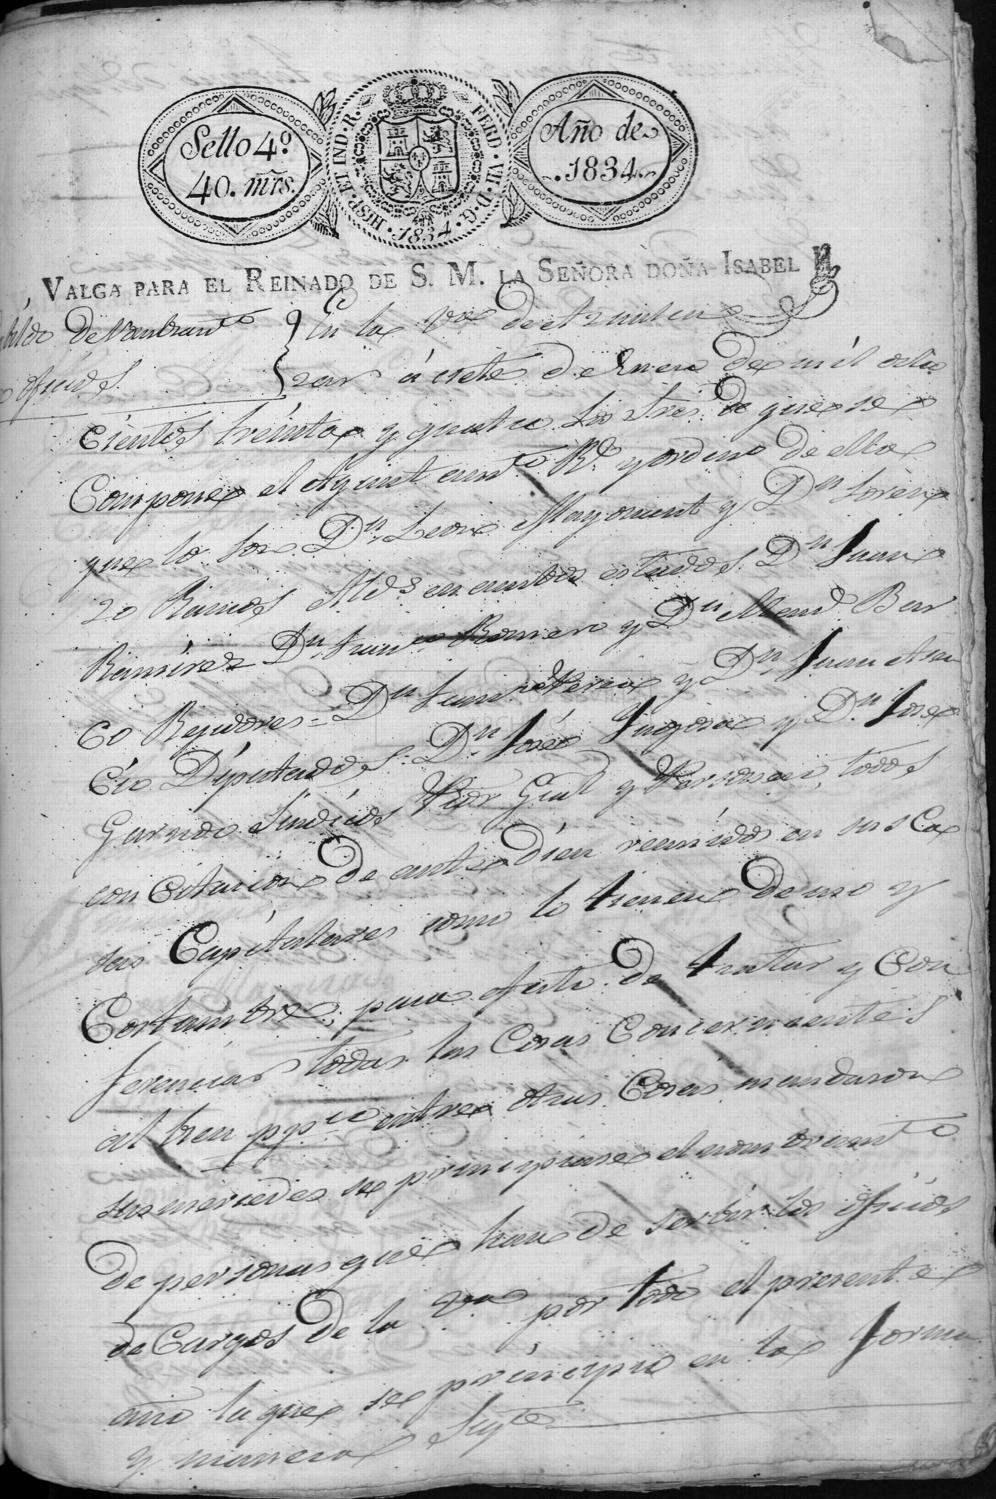 Sello 4º
40. mrs.
HISP. ET IND. R. FERD. VII. D. G. 1834.
Año de
1834.
VALGA PARA EL REINADO DE S. M. LA SEÑORA DOÑA ISABEL II
bildo de nombramto
oficios
En la Va de
zar á ciete de Enero de mil ocho
cientos treinta y quatro los Sres de que se
Compone el Ayuntamto Rl y ordino de ella
que lo son Dn Leon Mayoment y Dn Loren
zo Ramos Alds en ambos estados Dn Juan
Ramirez Dn Franco Romero y Dn Manl Bar
co Rejidores = Dn Franco Perea y Dn Juan Ana
cio Diputados = Dn José y Dn Jose
Garrido Sindicos Pror Gral y Personero, todos
con citacion de ante Dien reunidos en sus Ca
sas Capitulares como lo tienen de uso y
Costumbre, para efecto de tratar y Con
ferenciar todas las Cosas Concernientes
al bien ppco entre otras Cosas mandaron
sus mercedes se principiase el nombramto
de personas que han de serbir los oficios
de Cargos de la Va por todo el presente
año la que se principio en la forma
y manera Sigte